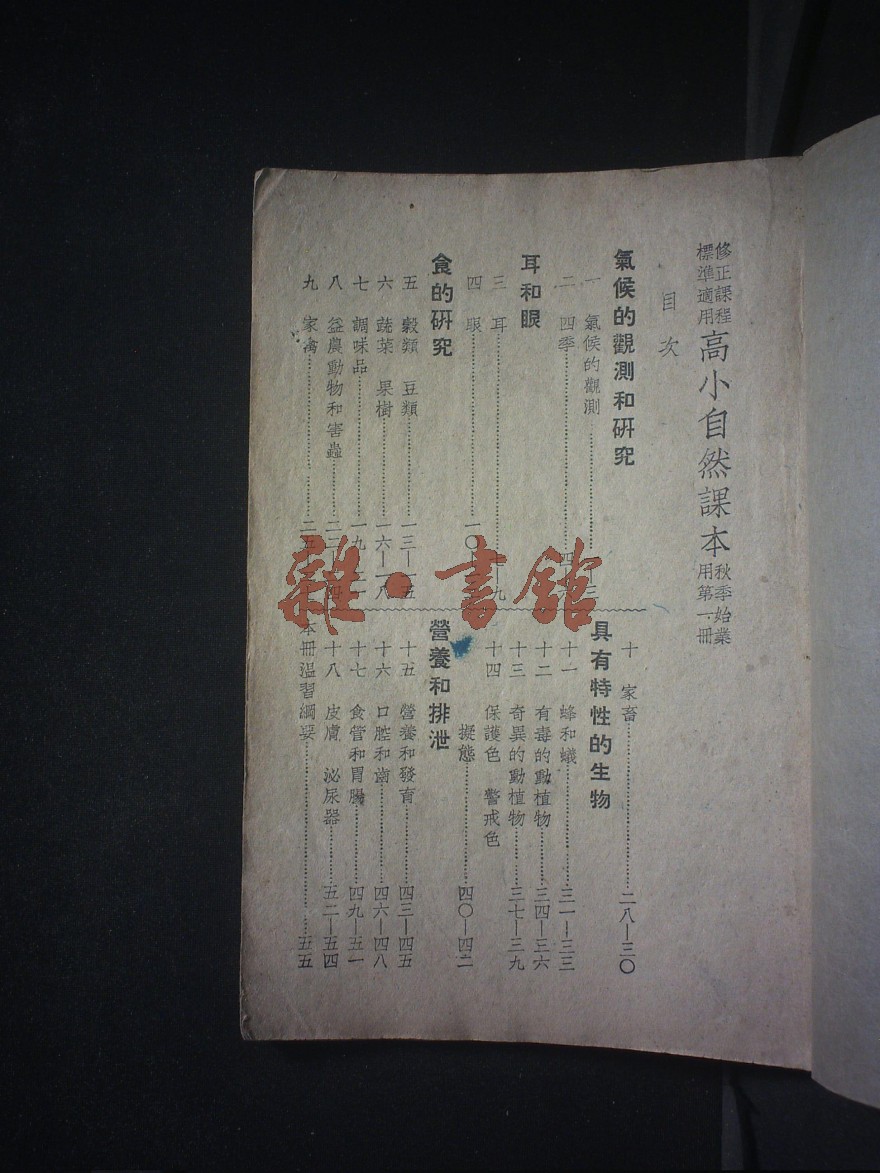 修正課程標準適用 高小自然課本 秋季始業用第一冊
目次
氣候的觀測和研究
一 氣候的觀測……三
二 四季……四
耳和眼
三 耳……九
四 眼……一〇
食的研究
五 穀類 豆類……一三—一五
六 蔬菜 果樹……一六—一八
七 調味品……一九
八 益農動物和害蟲……二二
九 家禽……二五
十 家畜……二八—三〇
具有特性的生物
十一 蜂和蟻……三一—三三
十二 有毒的動植物……三四—三六
十三 奇異的動植物……三七—三九
十四 保護色 警戒色
擬態……四〇—四二
營養和排泄
十五 營養和發育……四三—四五
十六 口腔和齒……四六—四八
十七 食管和胃腸……四九—五一
十八 皮膚 泌尿器……五二—五四
本冊溫習綱要……五五
雜·書館